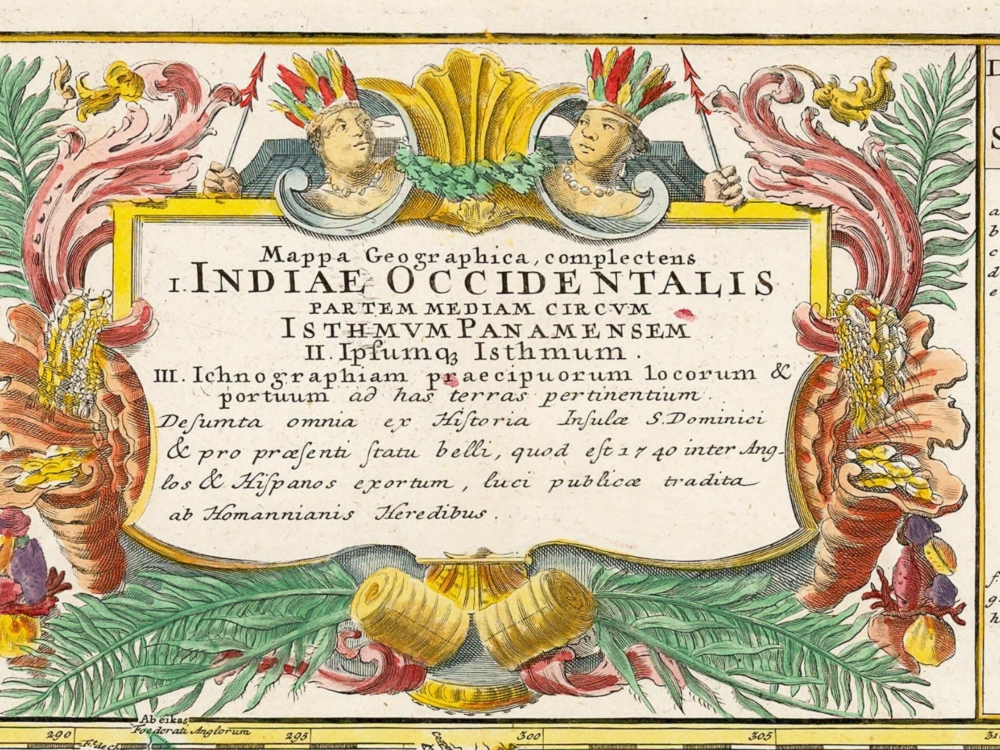 Mappa Geographica, complectens
I. INDIAE OCCIDENTALIS
PARTEM MEDIAM CIRCVM
ISTHMVM PANAMENSEM
II. Ipſumqꝫ Isthmum.
III. Ichnographiam praecipuorum locorum &
portuum ad has terras pertinentium.
Deſumta omnia ex Hiſtoria Inſulæ S. Dominici
& pro præſenti ſtatu belli, quod eſt 1740 inter Ang-
los & Hiſpanos exortum, luci publicæ tradita
ab Homannianis Heredibus.
D
S
a
b
c
d
e
f.
g.
h
Abeikas
Foederati Anglorum
290
295
300
305